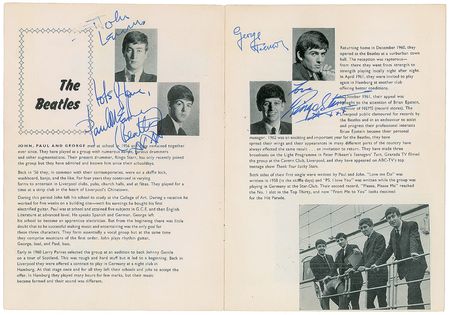 John
Lennon
The
Beatles
lots Love,
Paul McCartney
Beatles
JOHN, PAUL AND GEORGE met at school in 1956 and continued together
ever since. They have played as a group with numerous various drummers
and other augmentations. Their present drummer, Ringo Starr, has only recently joined
the group but they have admired and known him since their schooldays.
Back in '56 they, in common with their contemporaries, were on a skiffle kick,
washboard, and the like. For four years they continued in varying
forms to entertain in Liverpool clubs, pubs, church halls, and at fêtes. They played for a
class at a strip club in the heart of Liverpool's Chinatown.
During this period John left his school to study at the College of Art. During a vacation he
worked for five weeks on a building site—with his earnings he bought his first
amplified guitar. Paul was at school and attained five subjects in G.C.E. and then English
Literature at advanced level. He speaks Spanish and German. George left
his school to become an apprentice electrician. But from the beginning there was little
doubt that to be successful making music and entertaining was the only goal for
these three characters. They form essentially a vocal group but at the same time
they comprise musicians of the first order. John plays rhythm guitar,
George, lead, and Paul, bass.
Early in 1960 Larry Parnes selected the group at an audition to back Johnny Gentle
on a tour of Scotland. This was rough and hard stuff but it led to a beginning. Back in
Liverpool they were offered a contract to play in Germany at a night club in
Hamburg. At that stage once and for all they left their schools and jobs to accept the
offer. In Hamburg they played many hours for few marks, but their music
became formed and their sound was different.
George
Harrison
Returning home in December 1960, they
appeared as the Beatles at a suburban town
hall. The reception was rapturous—
from there they went from strength to
strength playing locally night after night.
In April 1961, they were invited to play
again in Hamburg at another club
offering better conditions.
October 1961, their appeal was
brought to the attention of Brian Epstein,
of NEMS (record stores). The
Liverpool public clamoured for records by
the Beatles and in an endeavour to assist
and progress their professional interests
Brian Epstein became their personal
manager. 1962 was an exciting and important year for the Beatles, they have
spread their wings and their appearances in many different parts of the country have
always effected the same result—an invitation to return. They have made three
broadcasts on the Light Programme in Peter Pilbeam's Teenagers' Turn, Granada TV filmed
the group at the Cavern Club, Liverpool, and they have appeared on ABC-TV's top
teenage show Thank Your Lucky Stars.
Both sides of their first single were written by Paul and John. "Love me Do" was
written in 1958 (in the skiffle days) and "P.S. I Love You" was written while the group was
playing in Germany at the Star-Club. Their second record, "Please, Please Me" reached
the No. 1 slot in the Top Thirty, and now "From Me to You" looks destined
for the Hit Parade.